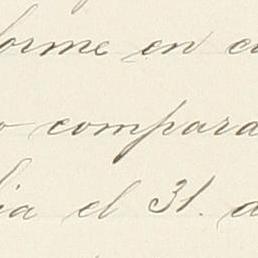 forme en c
comparad
el 31. d